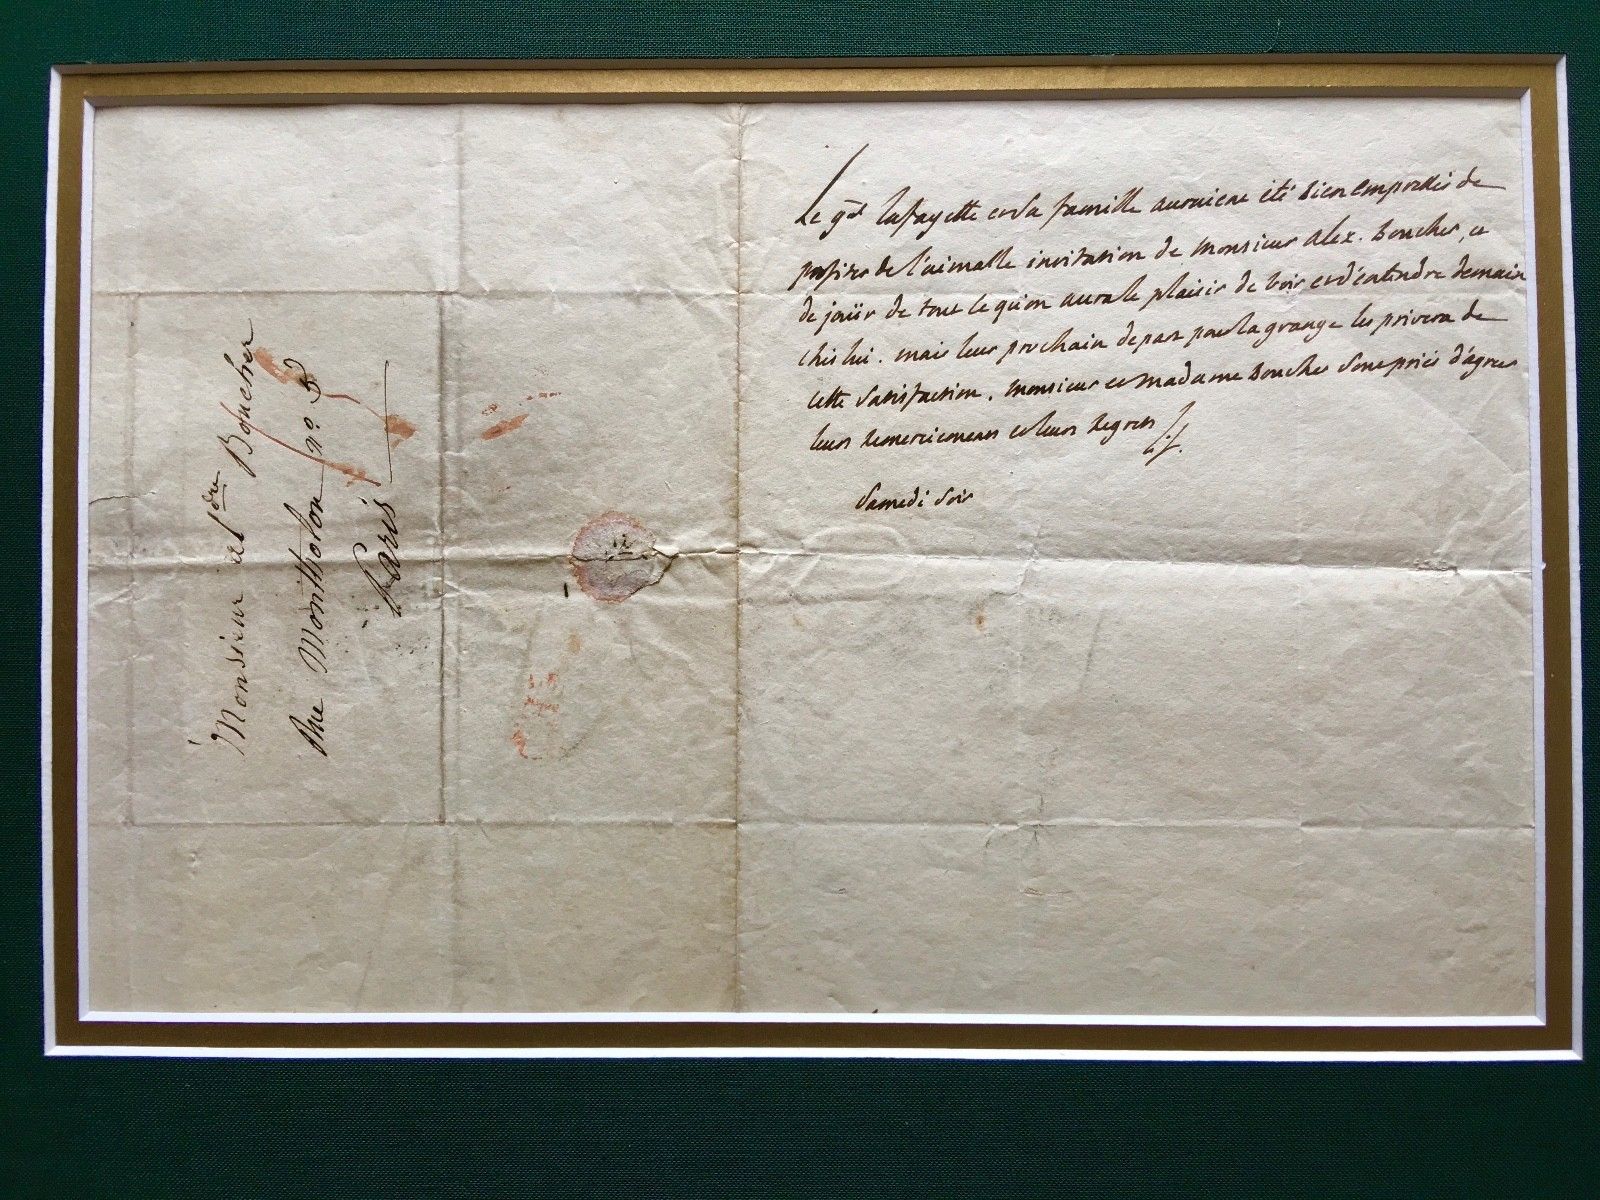 Monsieur al^dre Boucher
Rue Montholon n°. 5
Paris
Le g^al Lafayette et sa famille auroient été bien empressés de
profiter de l'aimable invitation de Monsieur Alex. Boucher, et
de joüir de tout ce qu'on aura le plaisir de voir et d'entendre demain
chés lui. mais leur prochain depart pour la grange les privera de
cette satisfaction. Monsieur et Madame Boucher sont priés d'agreer
leurs remerciemens et leurs regrets
Samedi soir